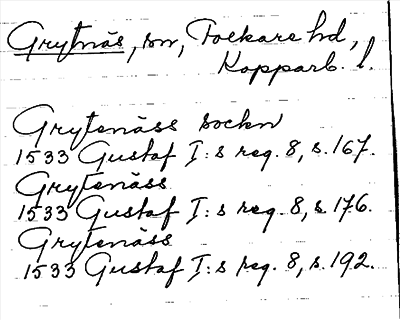 Grytnäs, sn, Folkare hd,
Kopparb. l.
Grytenäss sockn
1533 Gustaf I:s reg. 8, s. 167.
Grytenäss
1533 Gustaf I:s reg. 8, s. 176.
Grytenäss
1533 Gustaf I:s reg. 8, s. 192.